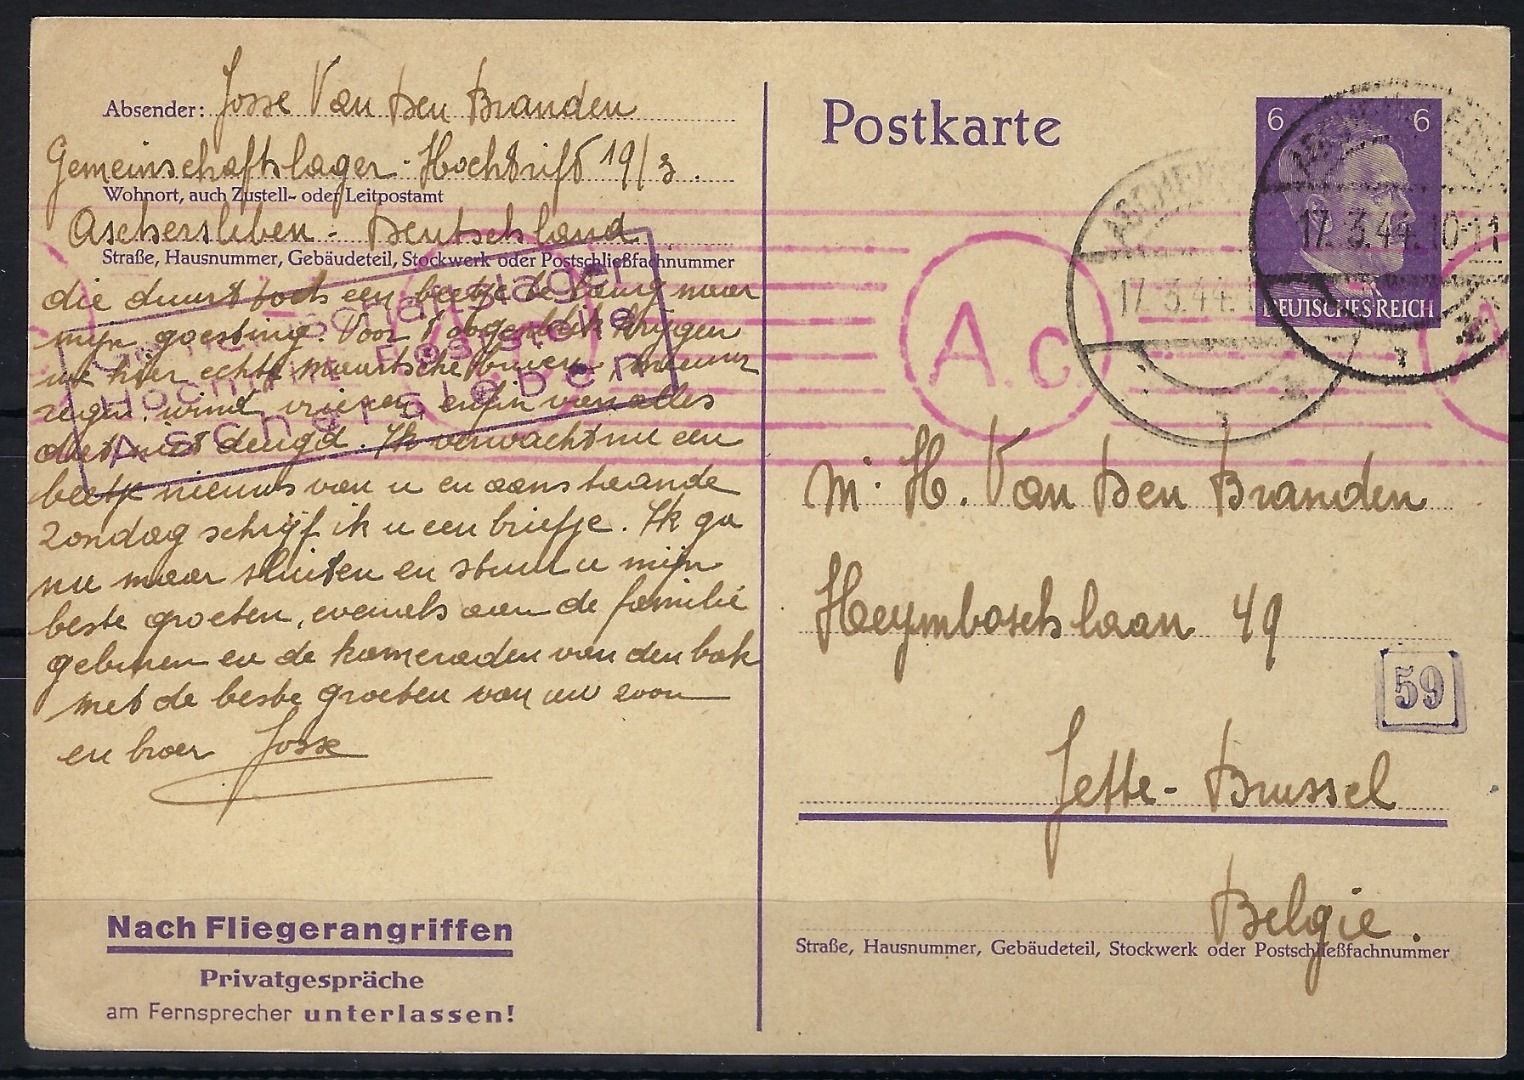 Absender: Josse Van Den Branden
Gemeinschaftslager - Hochtrift 19/3.
Wohnort, auch Zustell- oder Leitpostamt
Aschersleben - Deutschland
Straße, Hausnummer, Gebäudeteil, Stockwerk oder Postschließfachnummer
die duurt toch een beetje te lang naar
mijn goesting. Voor 't ogenblik krijgen
we hier echte maartsche buien,
regen, wind, vriezen, enfin van alles
dat niet deugd. Ik verwacht nu een
beetje nieuws van u en aanstaande
Zondag schrijf ik u een briefje. Ik ga
nu maar sluiten en stuur u mijn
beste groeten, evenals aan de familie
geburen en de kameraden van den bak
met de beste groeten van uw zoon
en broer Josse
Hochtrift Poststelle
Aschersleben
Nach Fliegerangriffen
Privatgespräche
am Fernsprecher unterlassen!
Postkarte
6 6
DEUTSCHES REICH
17.3.44.10-11
17.3.44.1
A.c.
M. H. Van Den Branden
Heymboschlaan 49
59
Jette - Brussel
Belgie.
Straße, Hausnummer, Gebäudeteil, Stockwerk oder Postschließfachnummer